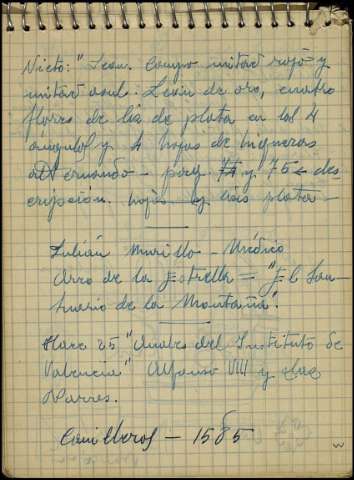 Nieto: "Leon. Campo mitad rojo y
mitad azul. León de oro, cuatro
flores de lis de plata en los 4
angulos y 4 hojas de higueras
alternando - pag. 74 y 75 des
cripción. hojas y lises plata -
Julián Murillo - Médico
Arro de la Estrella = "El San-
tuario de la Montaña".
Hace 25 "Anales del Instituto de
Valencia" Alfonso VIII y las
Navas.
Canilleros - 1585